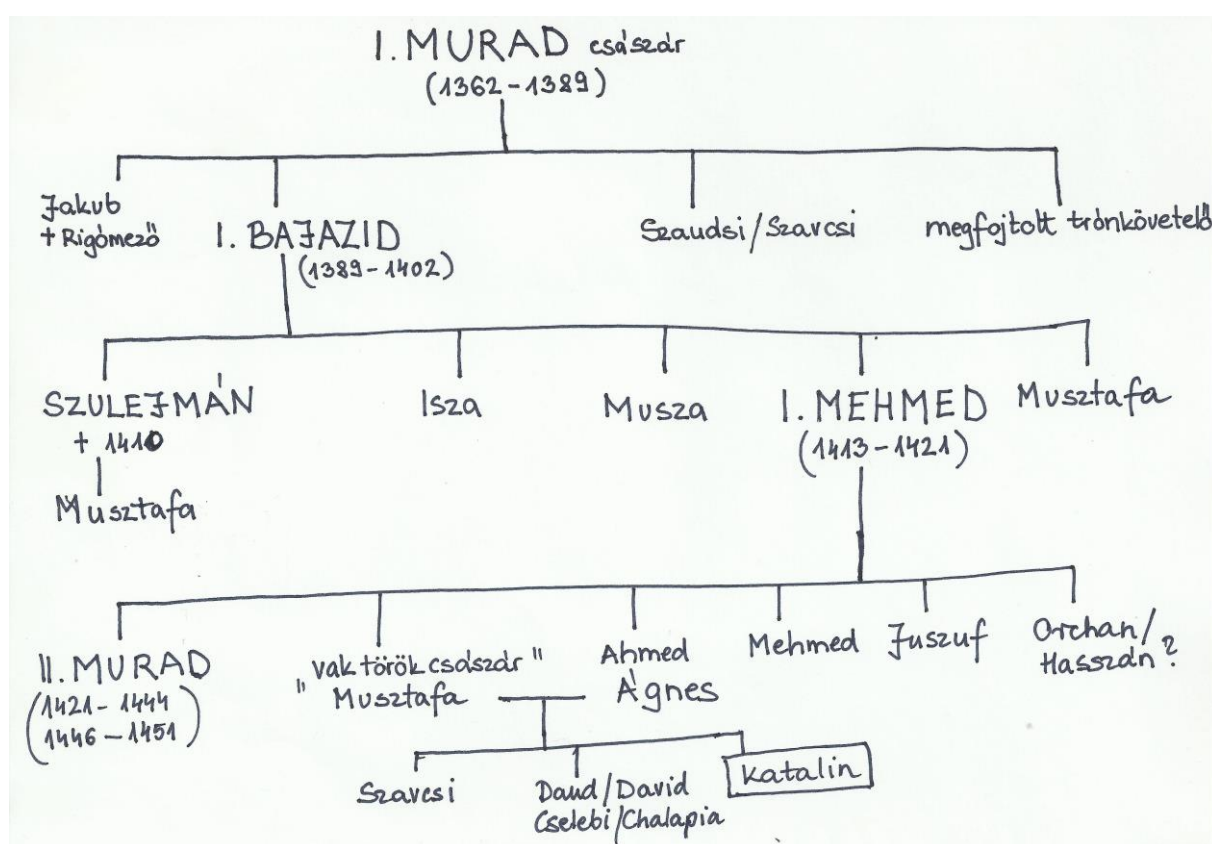 I. MURAD császár
(1362-1389)
Jakub
+ Rigómező
I. BAJAZID
(1389-1402)
Szaudsi/Szavcsi
megfojtott trónkövetelő
SZULEJMÁN
+ 1410
Musztafa
Isza
Musza
I. MEHMED
(1413-1421)
Musztafa
II. MURAD
(1421-1444
1446-1451)
"vak török császár"
Musztafa
Ahmed
Ágnes
Mehmed
Juszuf
Orchan/
Hasszán?
Szavcsi
Daud/David
Cselebi/Chalapia
Katalin